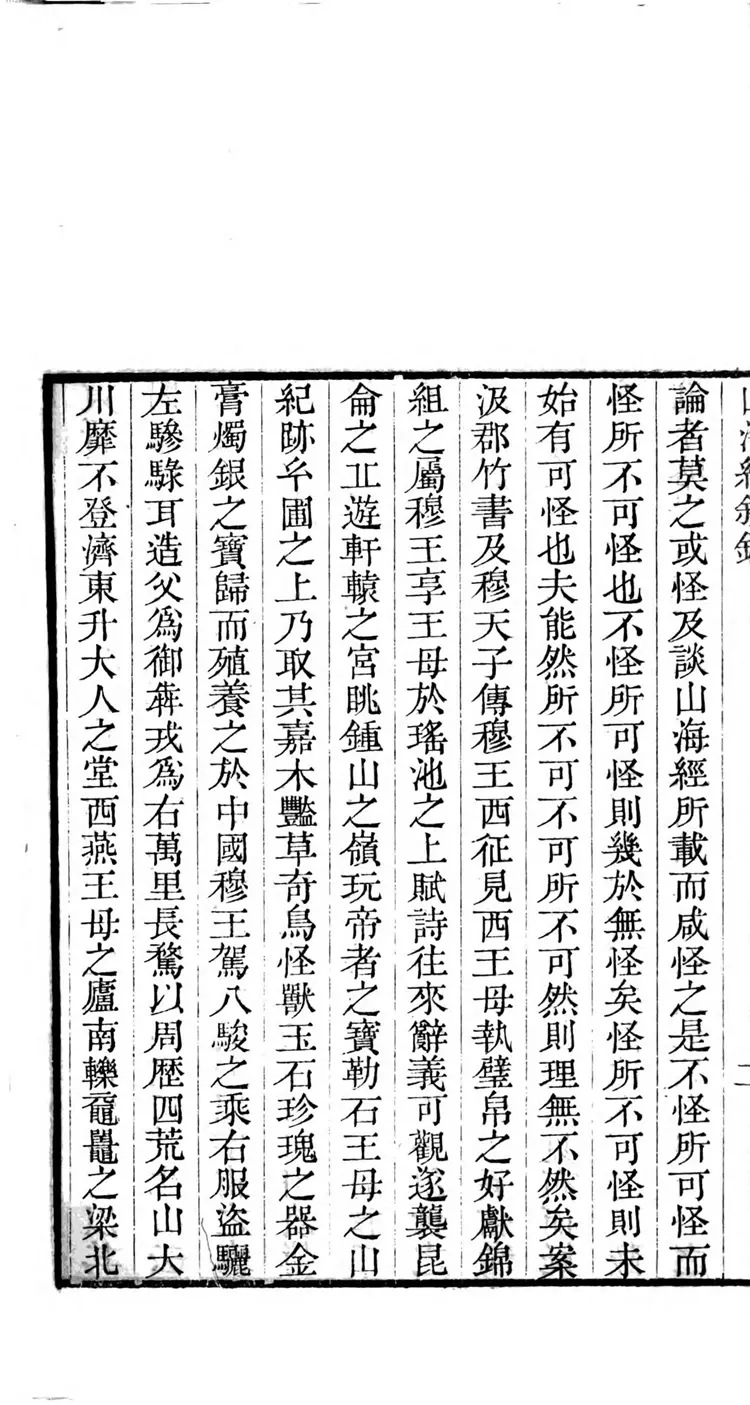 論者莫之或怪及談山海經所載而咸怪之是不怪所可怪而
怪所不可怪也不怪所可怪則幾於無怪矣怪所不可怪則未
始有可怪也夫能然所不可不可所不可然則理無不然矣案
汲郡竹書及穆天子傳穆王西征見西王母執璧帛之好獻錦
組之屬穆王享王母於瑤池之上賦詩往來辭義可觀遂襲昆
侖之丠遊軒轅之宮眺鍾山之嶺玩帝者之寶勒石王母之山
紀跡𤣥圃之上乃取其嘉木豔草奇鳥怪獸玉石珍瑰之器金
膏燭銀之寶歸而殖養之於中國穆王駕八駿之乘右服盜驪
左驂騄耳造父爲御犇戎爲右萬里長騖以周歷四荒名山大
川靡不登濟東升大人之堂西燕王母之廬南轢黿鼉之梁北